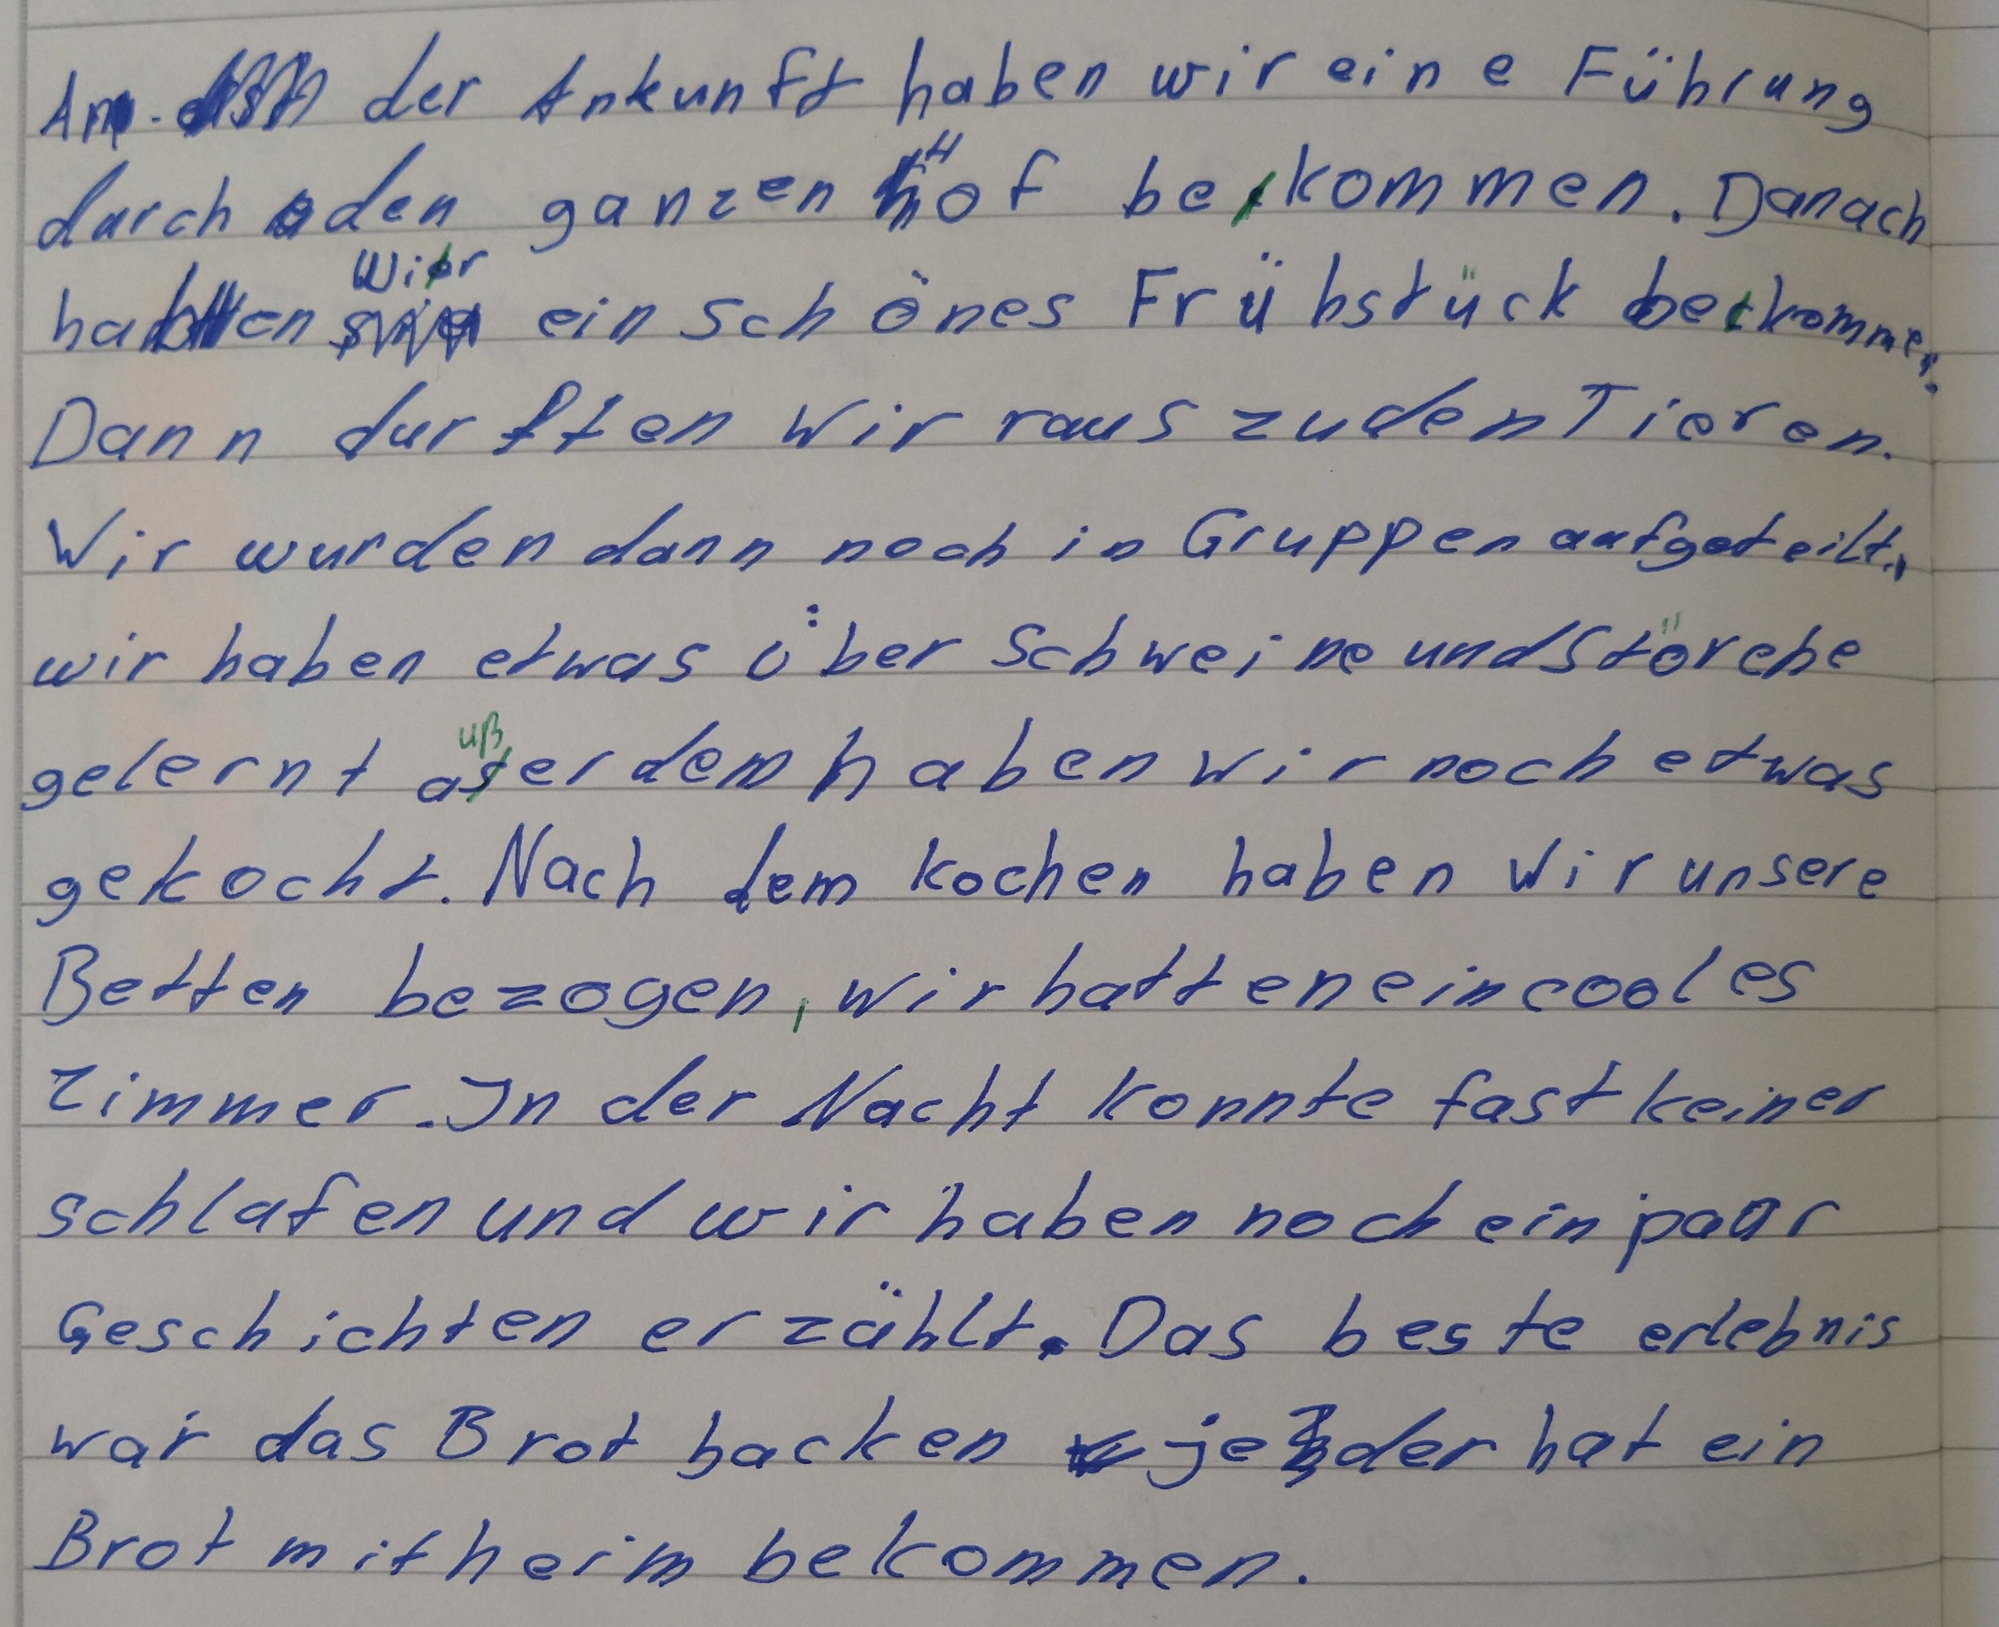 An der Ankunft haben wir eine Führung
durch den ganzen Hof bekommen. Danach
haben wir ein schönes Frühstück bekommen.
Dann durften wir raus zu den Tieren.
Wir wurden dann noch in Gruppen aufgeteilt,
wir haben etwas über Schweine und Störche
gelernt außerdem haben wir noch etwas
gekocht. Nach dem kochen haben wir unsere
Betten bezogen, wir hatten ein cooles
Zimmer. In der Nacht konnte fast keiner
schlafen und wir haben noch ein paar
Geschichten erzählt. Das beste erlebnis
war das Brot backen jeder hat ein
Brot mit heim bekommen.